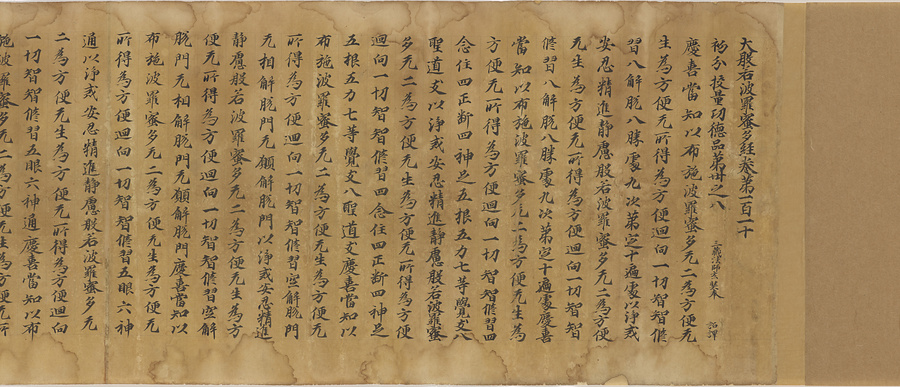 大般若波羅蜜多經卷第一百十
初分挍量功德品第卅之八 三藏法師玄奘奉 詔譯
慶喜當知以布施波羅蜜多无二為方便无
生為方便无所得為方便迴向一切智智脩
習八解脫八勝處九次第定十遍處以淨戒
安忍精進靜慮般若波羅蜜多无二為方便
无生為方便无所得為方便迴向一切智智
脩習八解脫八勝處九次第定十遍處慶喜
當知以布施波羅蜜多无二為方便无生為
方便无所得為方便迴向一切智智脩習四
念住四正断四神足五根五力七等覺支八
聖道支以淨戒安忍精進靜慮般若波羅蜜
多无二為方便无生為方便无所得為方便
迴向一切智智脩習四念住四正断四神足
五根五力七等覺支八聖道支慶喜當知以
布施波羅蜜多无二為方便无生為方便无
所得為方便迴向一切智智脩習空解脫門
无相解脫門无願解脫門以淨戒安忍精進
靜慮般若波羅蜜多无二為方便无生為方
便无所得為方便迴向一切智智脩習空解
脫門无相解脫門无願解脫門慶喜當知以
布施波羅蜜多无二為方便无生為方便无
所得為方便迴向一切智智脩習五眼六神
通以淨戒安忍精進靜慮般若波羅蜜多无
二為方便无生為方便无所得為方便迴向
一切智智脩習五眼六神通慶喜當知以布
施波羅蜜多无二為方便无生為方便无所